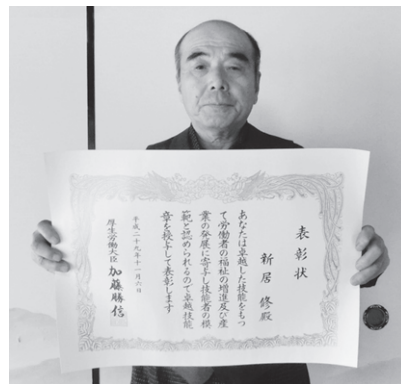 表彰状
新居 修殿
あなたは卓越した技能をもつ
て労働者の福祉の増進及び産
業の発展に寄与し技能者の模
範と認められるので卓越技能
章を授与して表彰します
平成二十九年十一月六日
厚生労働大臣 加藤勝信